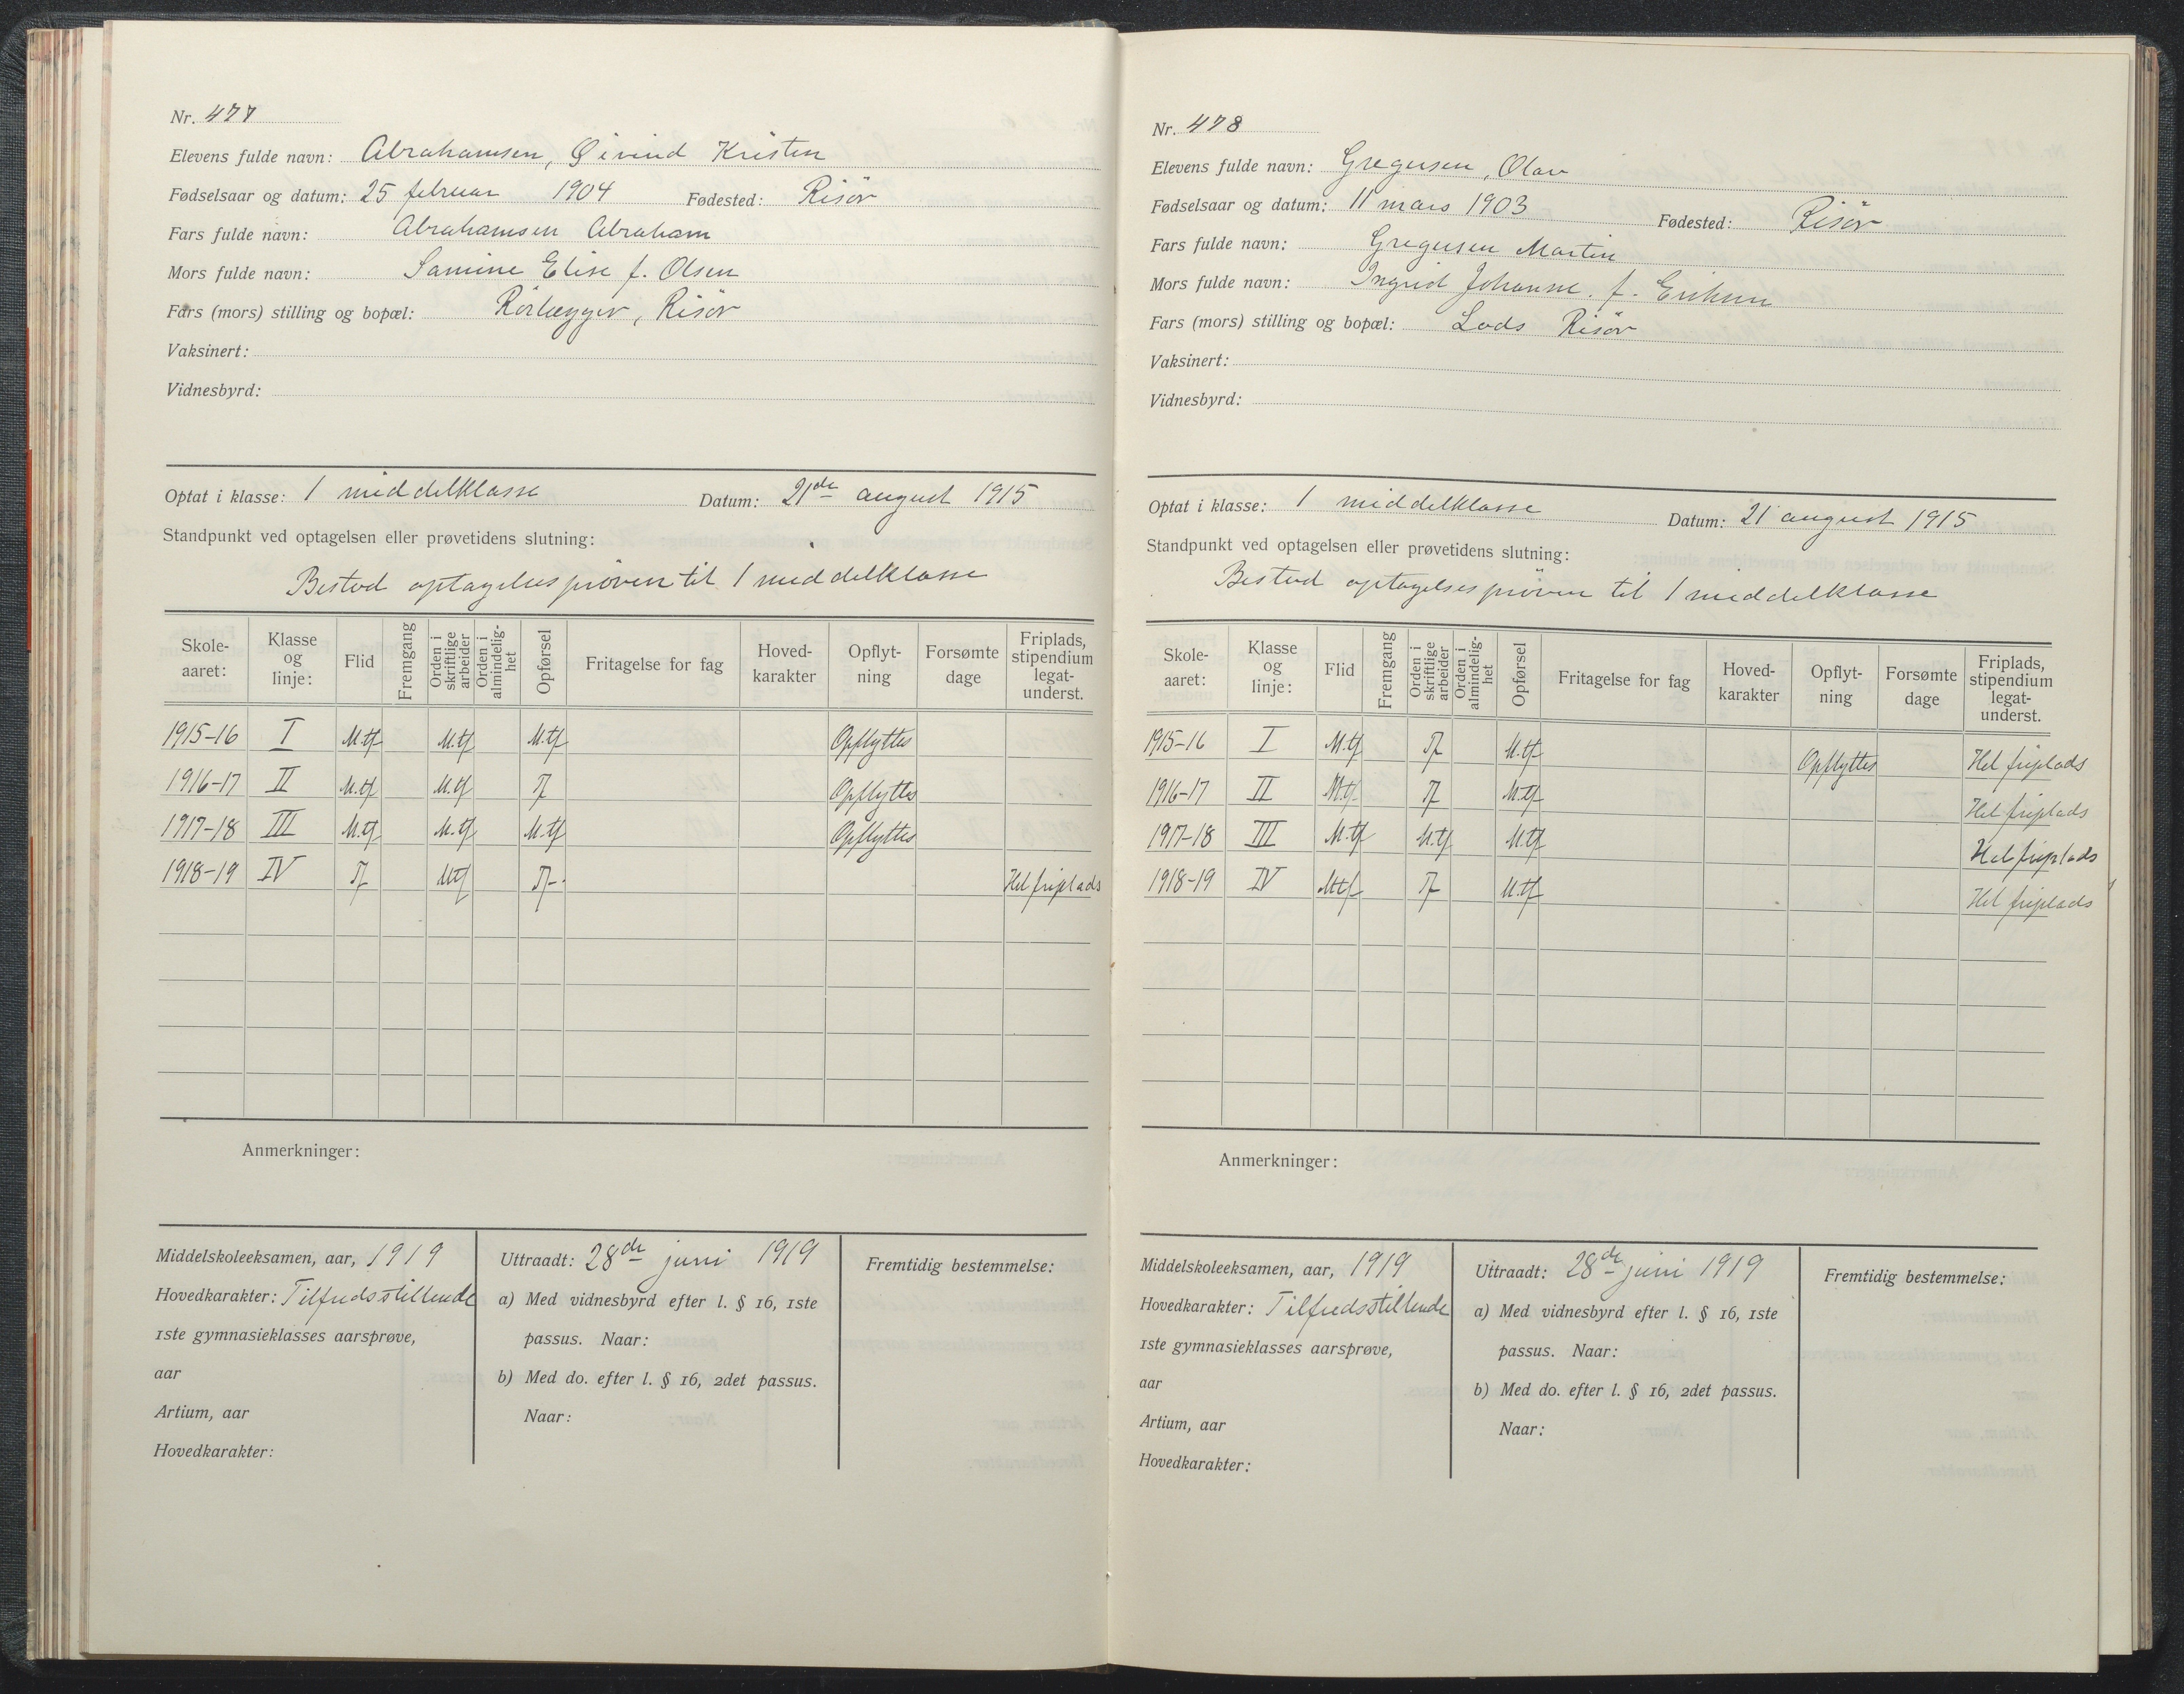 Nr. 477
Elevens fulde navn: Abrahamsen, Øivind Kristen
Fødselsaar og datum: 25 februar 1904 Fødested: Risör
Fars fulde navn: Abrahamsen Abraham
Mors fulde navn: Samine Elise f. Olsen
Fars (mors) stilling og bopæl: Rörlægger, Risör
Vaksinert:
Vidnesbyrd:
Optat i klasse: 1 middelklasse Datum: 21de august 1915
Standpunkt ved optagelsen eller prøvetidens slutning:
Bestod optagelsespröven til 1 middelklasse
Skole-aaret: Klasse og linje: Flid Fremgang Orden i skriftlige arbeider Orden i almindelig-het Opførsel Fritagelse for fag Hoved-karakter Opflyt-ning Forsømte dage Friplads, stipendium legat-underst.
1915-16 I M.tf M.tf M.tf Opflyttes
1916-17 II M.tf M.tf Tf Opflyttes
1917-18 III M.tf M.tf M.tf Opflyttes
1918-19 IV Tf Mtf Tf- Hel friplads
Anmerkninger:
Middelskoleeksamen, aar, 1919
Hovedkarakter: Tilfredsstillende
1ste gymnasieklasses aarsprøve,
aar
Artium, aar
Hovedkarakter:
Uttraadt: 28de juni 1919
a) Med vidnesbyrd efter l. § 16, 1ste
passus. Naar:
b) Med do. efter l. § 16, 2det passus.
Naar:
Fremtidig bestemmelse:
Nr. 478
Elevens fulde navn: Gregersen, Olav
Fødselsaar og datum: 11 mars 1903 Fødested: Risör
Fars fulde navn: Gregersen Martin
Mors fulde navn: Ingrid Johanne. f. Eriksen
Fars (mors) stilling og bopæl: Lods Risör
Vaksinert:
Vidnesbyrd:
Optat i klasse: 1 middelklasse Datum: 21 august 1915
Standpunkt ved optagelsen eller prøvetidens slutning:
Bestod optagelsespröven til 1 middelklasse
Skole-aaret: Klasse og linje: Flid Fremgang Orden i skriftlige arbeider Orden i almindelig-het Opførsel Fritagelse for fag Hoved-karakter Opflyt-ning Forsømte dage Friplads, stipendium legat-underst.
1915-16 I M.tf Tf M.tf Opflyttes Hel friplads
1916-17 II M.tf Tf M.tf Hel friplads
1917-18 III M.tf M.tf M.tf Hel friplads
1918-19 IV Mtf Tf M.tf Hel friplads
Anmerkninger:
Middelskoleeksamen, aar, 1919
Hovedkarakter: Tilfredsstillende
1ste gymnasieklasses aarsprøve,
aar
Artium, aar
Hovedkarakter:
Uttraadt: 28de juni 1919
a) Med vidnesbyrd efter l. § 16, 1ste
passus. Naar:
b) Med do. efter l. § 16, 2det passus.
Naar:
Fremtidig bestemmelse: